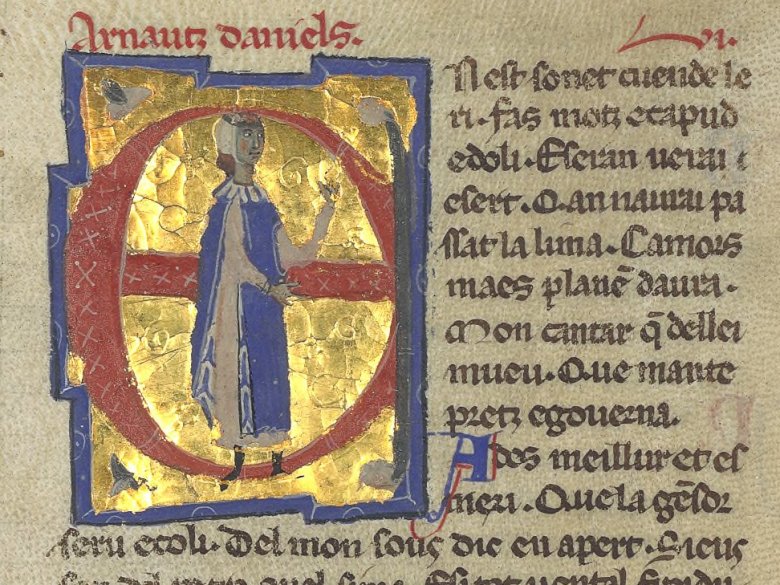 Arnautz daniels. .vi.
EN est sonet cuende le
ri. fas motz e capud
e doli. E seran uerai i
e sert. Q an naurai pa
ssat la lima. Camors
maes planẽ daura.
Mon cantar q̃ de llei
mueu. Que mante
pretz e gouerna.
Ades meillur et es
meri. Que la gẽsor
seru e coli. Del mon sous dic en apert. Sieus